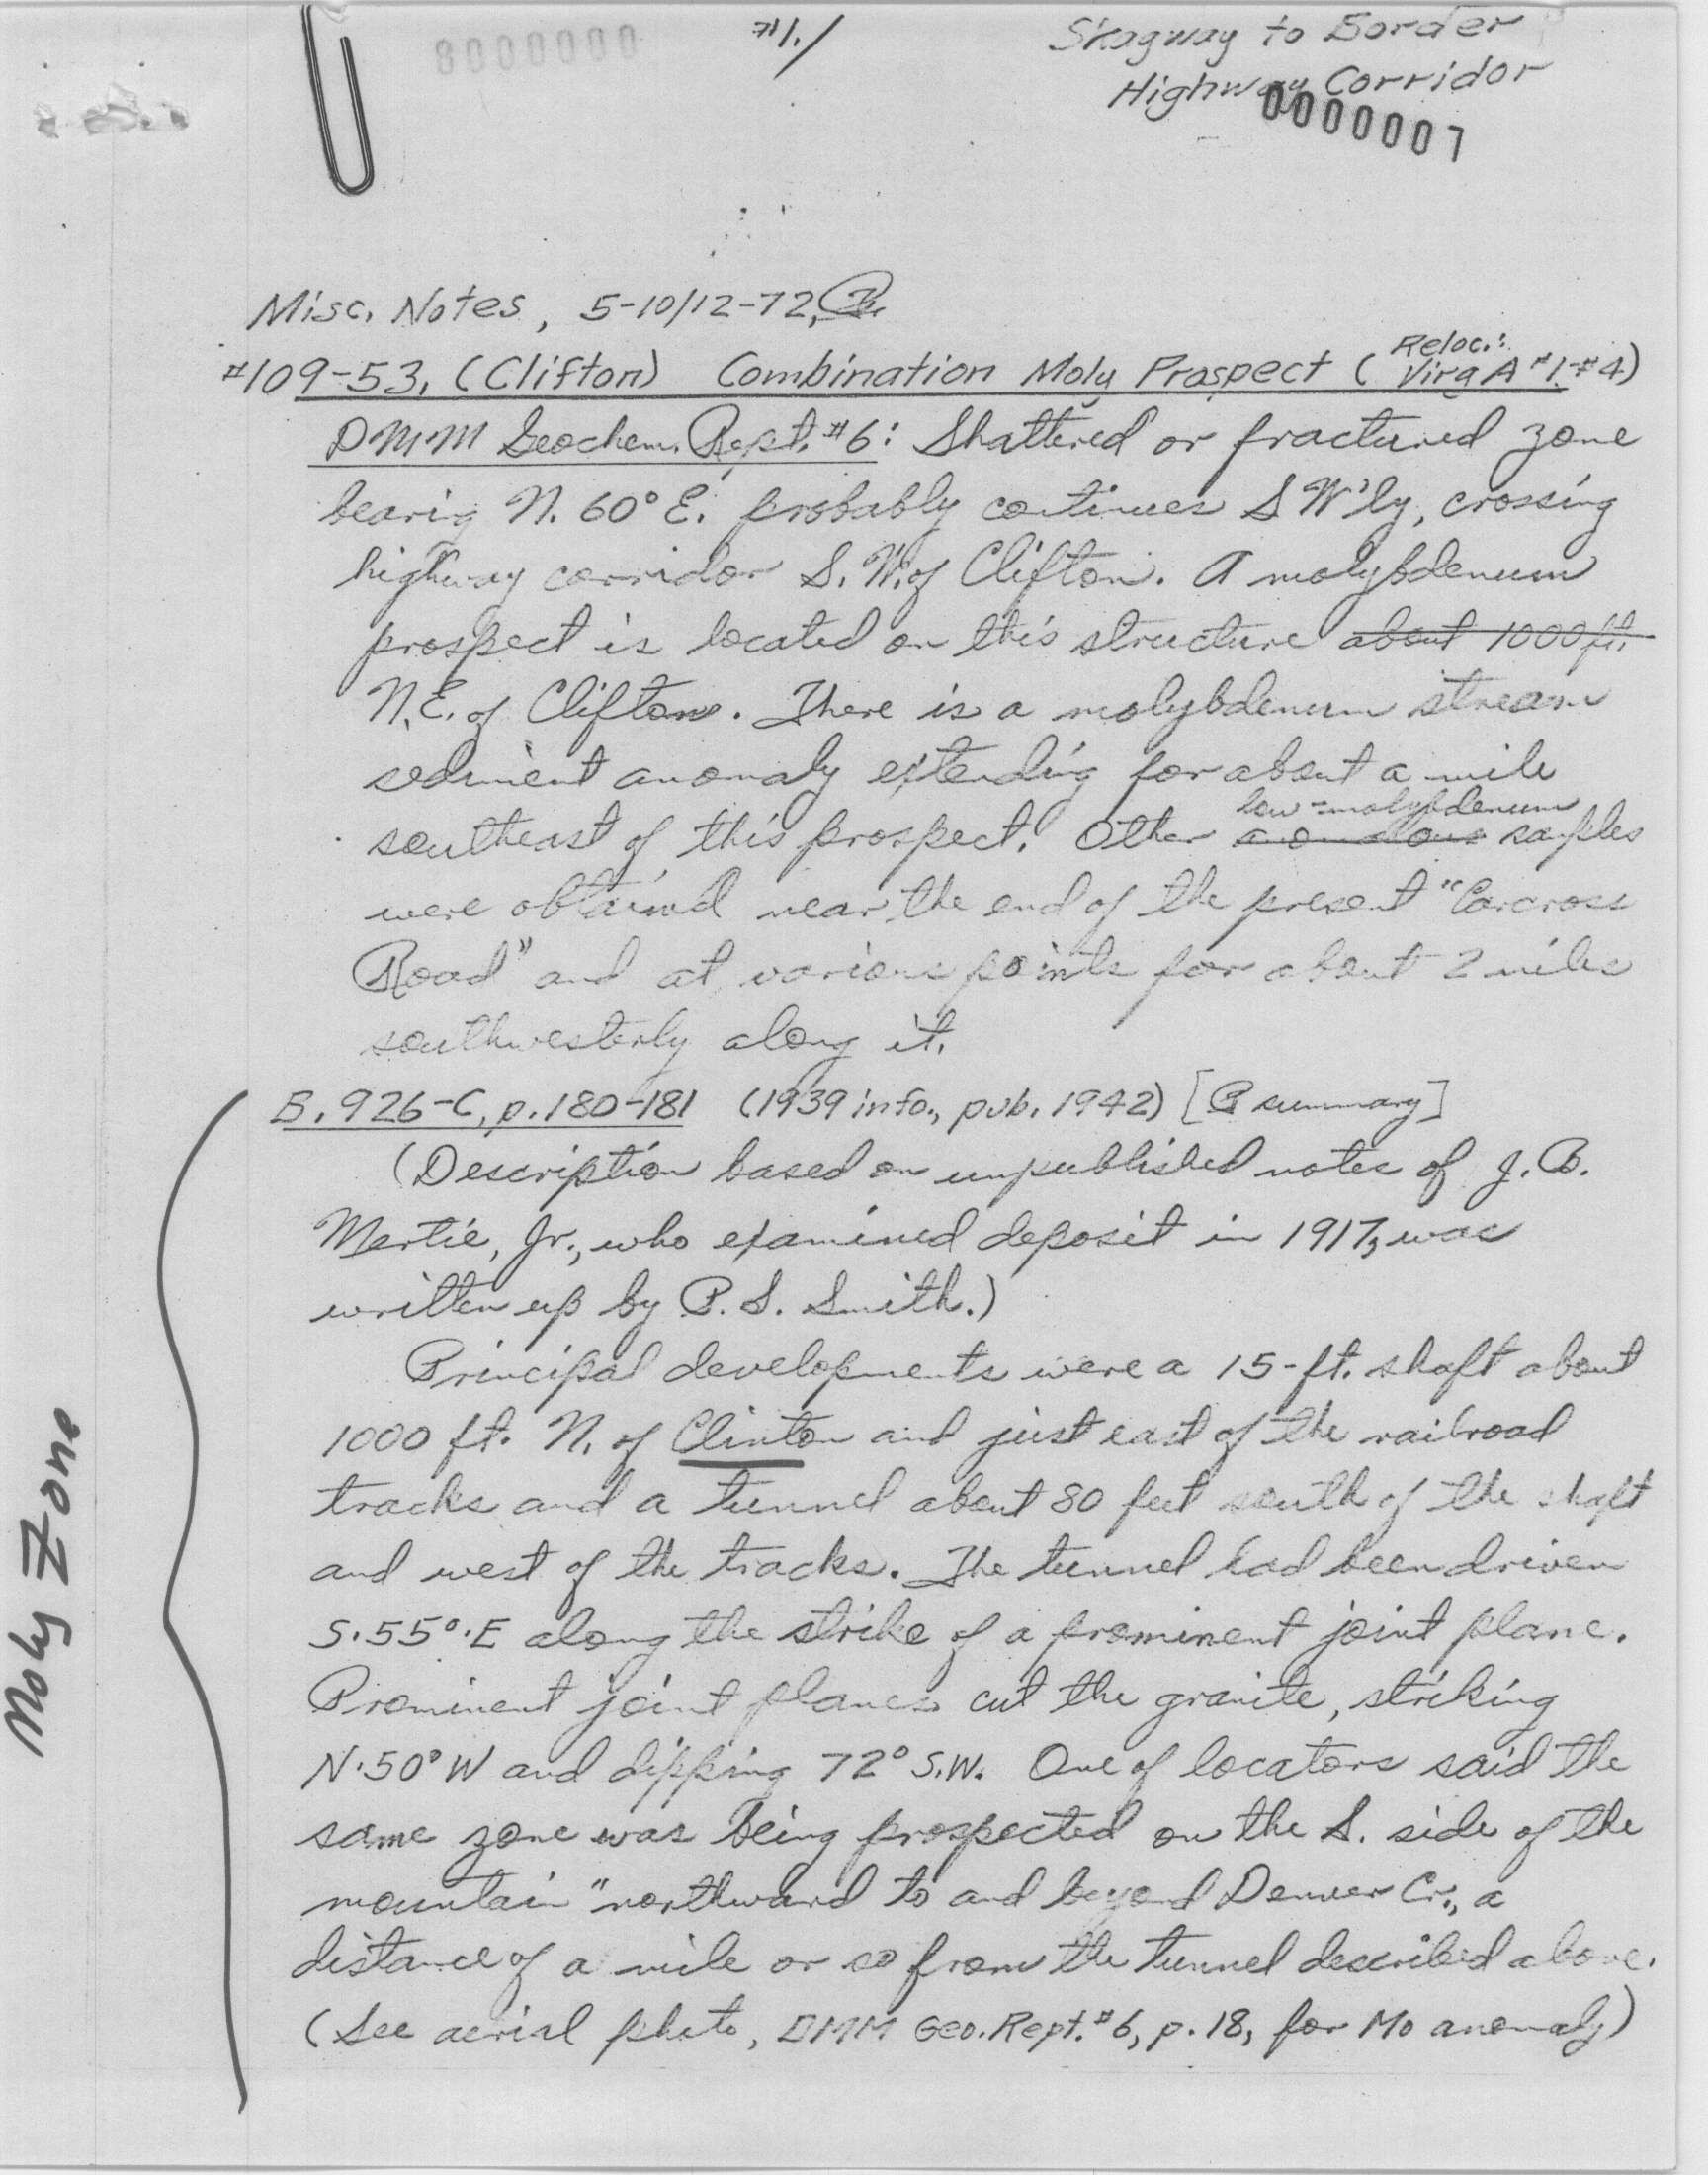 8000000
Skagway to Border
Highway Corridor
0000007
Misc. Notes, 5-10/12-72,
Reloc.:
#109-53, (Clifton) Combination Moly Prospect (Virg A #1-#4)
DMM Geochem. Rept. #6: Shattered or fractured zone
bearing N. 60° E. probably continues SW'ly, crossing
highway corridor S.W. of Clifton. A molybdenum
prospect is located on this structure about 1000 ft.
N.E. of Clifton. There is a molybdenum stream
sediment anomaly extending for about a mile
low-molybdenum
southeast of this prospect. Other anomalous samples
were obtained near the end of the present "Carcross
Road" and at various points for about 2 miles
southwesterly along it.
B. 926-C, p. 180-181 (1939 info., pub. 1942) [ summary]
(Description based on unpublished notes of J. B.
Mertie, Jr., who examined deposit in 1917, was
written up by P. S. Smith.)
Principal developments were a 15-ft. shaft about
1000 ft. N. of Clinton and just east of the railroad
tracks and a tunnel about 80 feet south of the shaft
and west of the tracks. The tunnel had been driven
S.55°.E along the strike of a prominent joint plane.
Prominent joint planes cut the granite, striking
N.50°W and dipping 72° S.W. One of locators said the
same zone was being prospected on the S. side of the
mountain "northward to and beyond Denver Cr., a
distance of a mile or so from the tunnel described above.
(See aerial photo, DMM Geo. Rept. #6, p. 18, for Mo anomaly)
Moly Zone